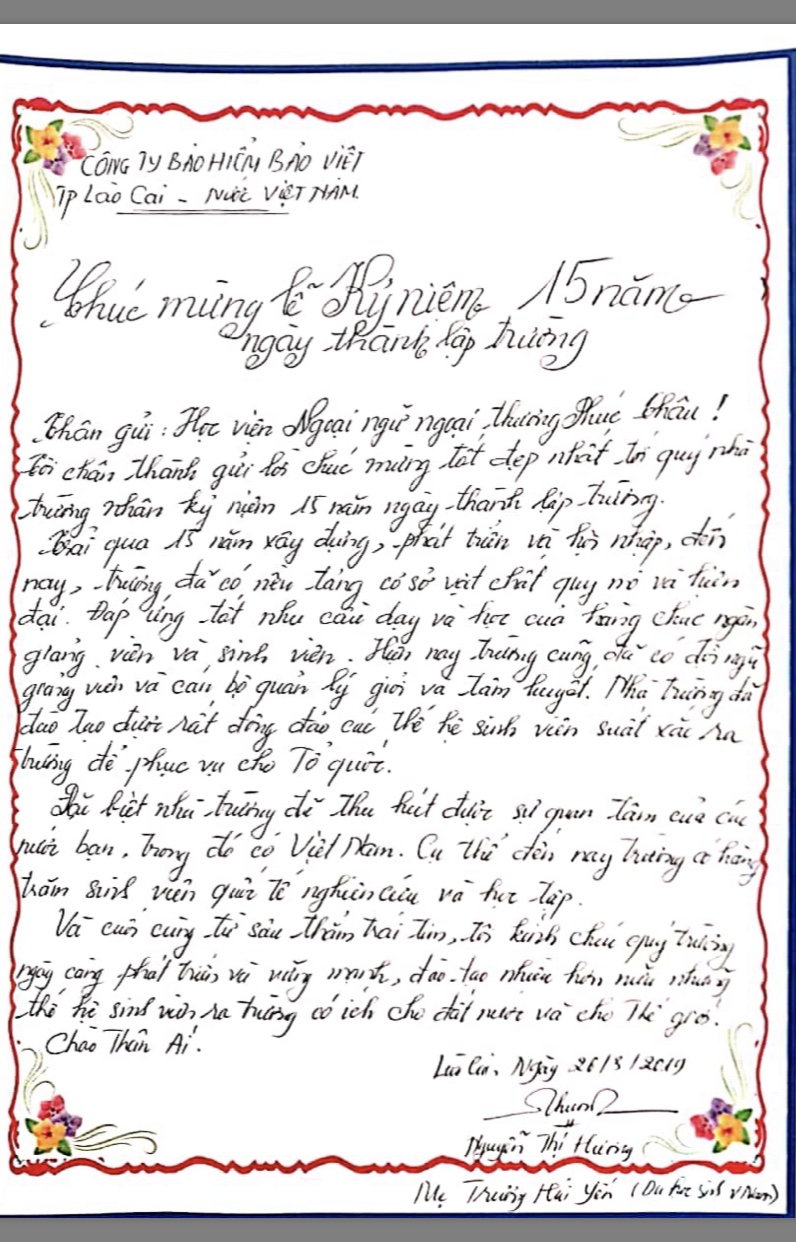 CÔNG TY BẢO HIỂM BẢO VIỆT
TP Lào Cai - Nước VIỆT NAM.
Chúc mừng lễ Kỷ niệm 15 năm
ngày thành lập trường
Thân gửi: Học viện Ngoại ngữ ngoại thương Phúc Châu!
Tôi chân thành gửi lời chúc mừng tốt đẹp nhất tới quý nhà
trường nhân kỷ niệm 15 năm ngày thành lập trường.
Trải qua 15 năm xây dựng, phát triển và hội nhập, đến
nay, trường đã có nền tảng cơ sở vật chất quy mô và hiện
đại. Đáp ứng tốt nhu cầu dạy và học của hàng chục ngàn
giảng viên và sinh viên. Hiện nay trường cũng đã có đội ngũ
giảng viên và cán bộ quản lý giỏi và tâm huyết. Nhà trường đã
đào tạo được rất đông đảo các thế hệ sinh viên suất xắc ra
trường để phục vụ cho Tổ quốc.
Đặc biệt nhà trường đã thu hút được sự quan tâm của các
nước bạn, trong đó có Việt Nam. Cụ thể đến nay trường có hàng
trăm sinh viên quốc tế nghiên cứu và học tập.
Và cuối cùng từ sâu thẳm trái tim, tôi kính chúc quý trường
ngày càng phát triển và vững mạnh, đào tạo nhiều hơn nữa những
thế hệ sinh viên ra trường có ích cho đất nước và cho Thế giới.
Chào Thân Ái.
Lào Cai, Ngày 26/8/2019
Nguyễn Thị Hương
Mẹ Trương Hải Yến (Du học sinh V Nam)